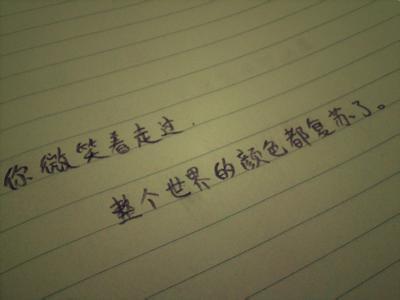 你微笑着走过.
整个世界的颜色都复苏了。